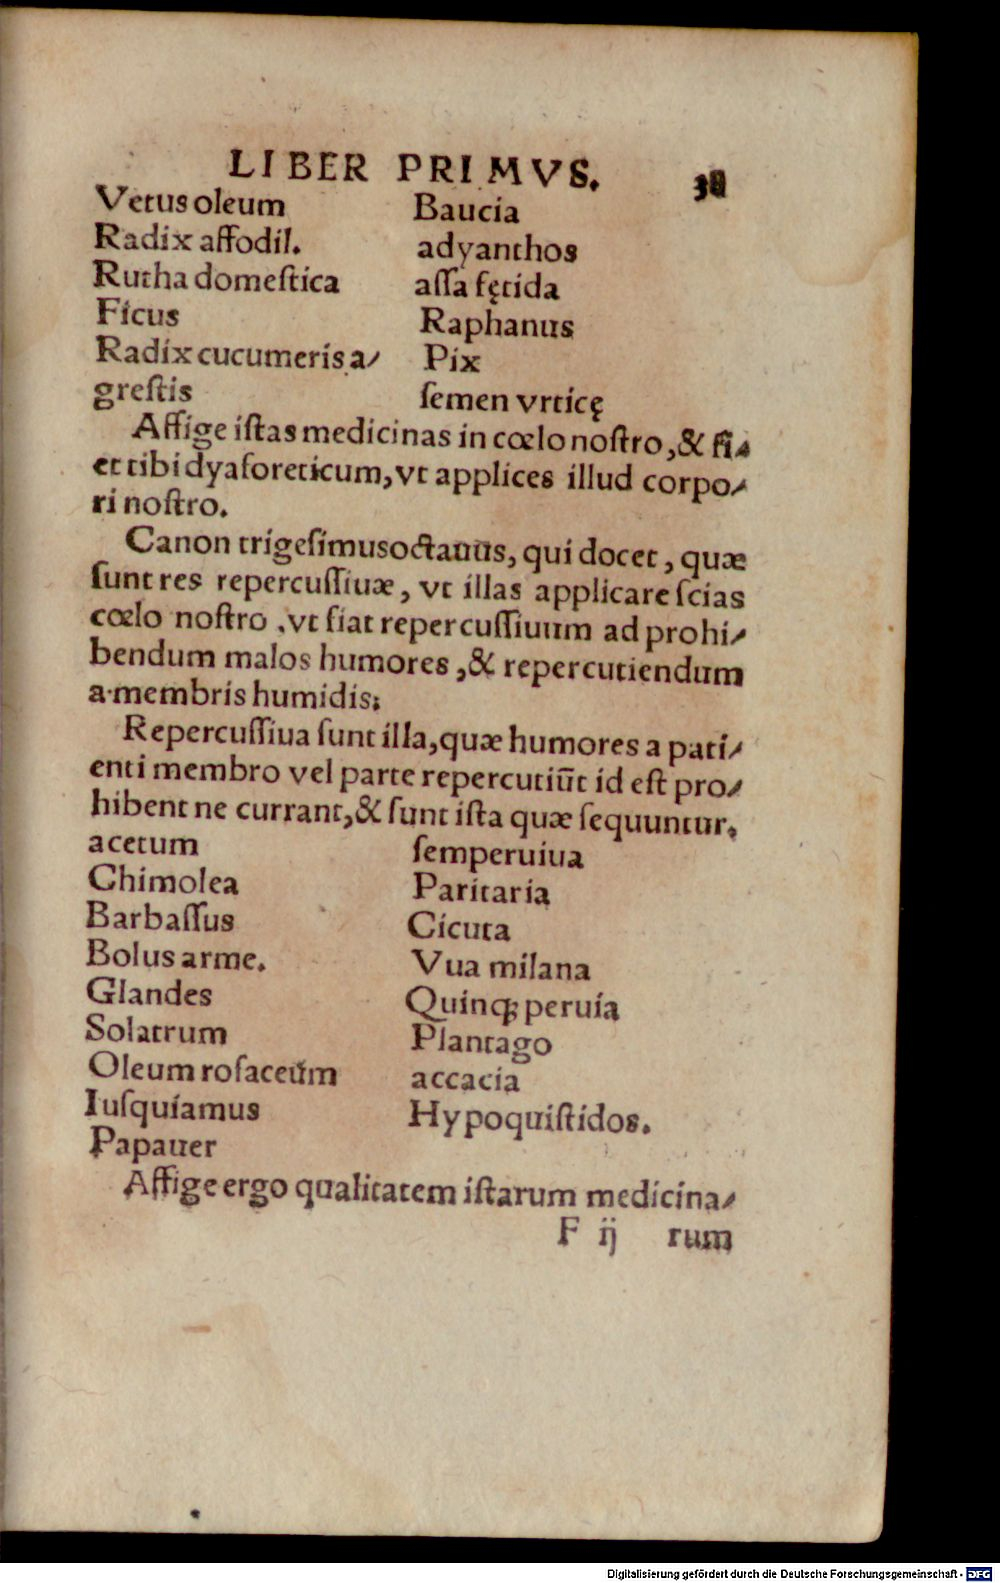 LIBER PRIMVS. 38
Vetus oleum Baucia
Radix affodil. adyanthos
Rutha domeſtica aſſa fętida
Ficus Raphanus
Radix cucumeris a⸗ Pix
greſtis ſemen vrticę
Affige iſtas medicinas in cœlo noſtro, & fi⸗
et tibi dyaforeticum, vt applices illud corpo⸗
ri noſtro.
Canon trigeſimusoctauus, qui docet, quæ
ſunt res repercuſſiuæ, vt illas applicare ſcias
cœlo noſtro , vt fiat repercuſſiuum ad prohi⸗
bendum malos humores, & repercutiendum
a membris humidis:
Repercuſſiua ſunt illa, quæ humores a pati⸗
enti membro vel parte repercutiũt id eſt pro⸗
hibent ne currant, & ſunt iſta quæ ſequuntur.
acetum ſemperuiua
Chimolea Paritaria
Barbaſſus Cicuta
Bolus arme. Vua milana
Glandes Quinq; peruia
Solatrum Plantago
Oleum roſaceum accacia
Iuſquiamus Hypoquiſtidos.
Papauer
Affige ergo qualitatem iſtarum medicina⸗
F ij rum
Digitalisierung gefördert durch die Deutsche Forschungsgemeinschaft - DFG